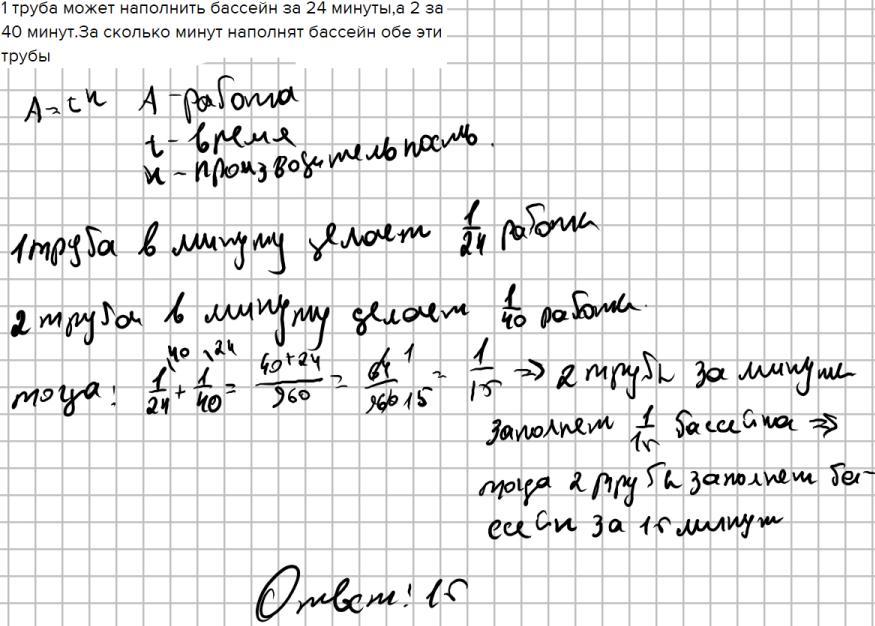 1 труба может наполнить бассейн за 24 минуты,а 2 за
40 минут.За сколько минут наполнят бассейн обе эти
трубы
A=tн A - работа
t - время
н - производительность.
1 труба в минуту делает 1/24 работы
2 труба в минуту делает 1/40 работы.
тогда: 1/24 \40 + 1/40 \24 = 40+24/960 = 64/960 1/15 = 1/15 => 2 трубы за минуту
заполнят 1/15 бассейна =>
тогда 2 трубы заполнят ба-
ссейн за 15 минут
Ответ: 15